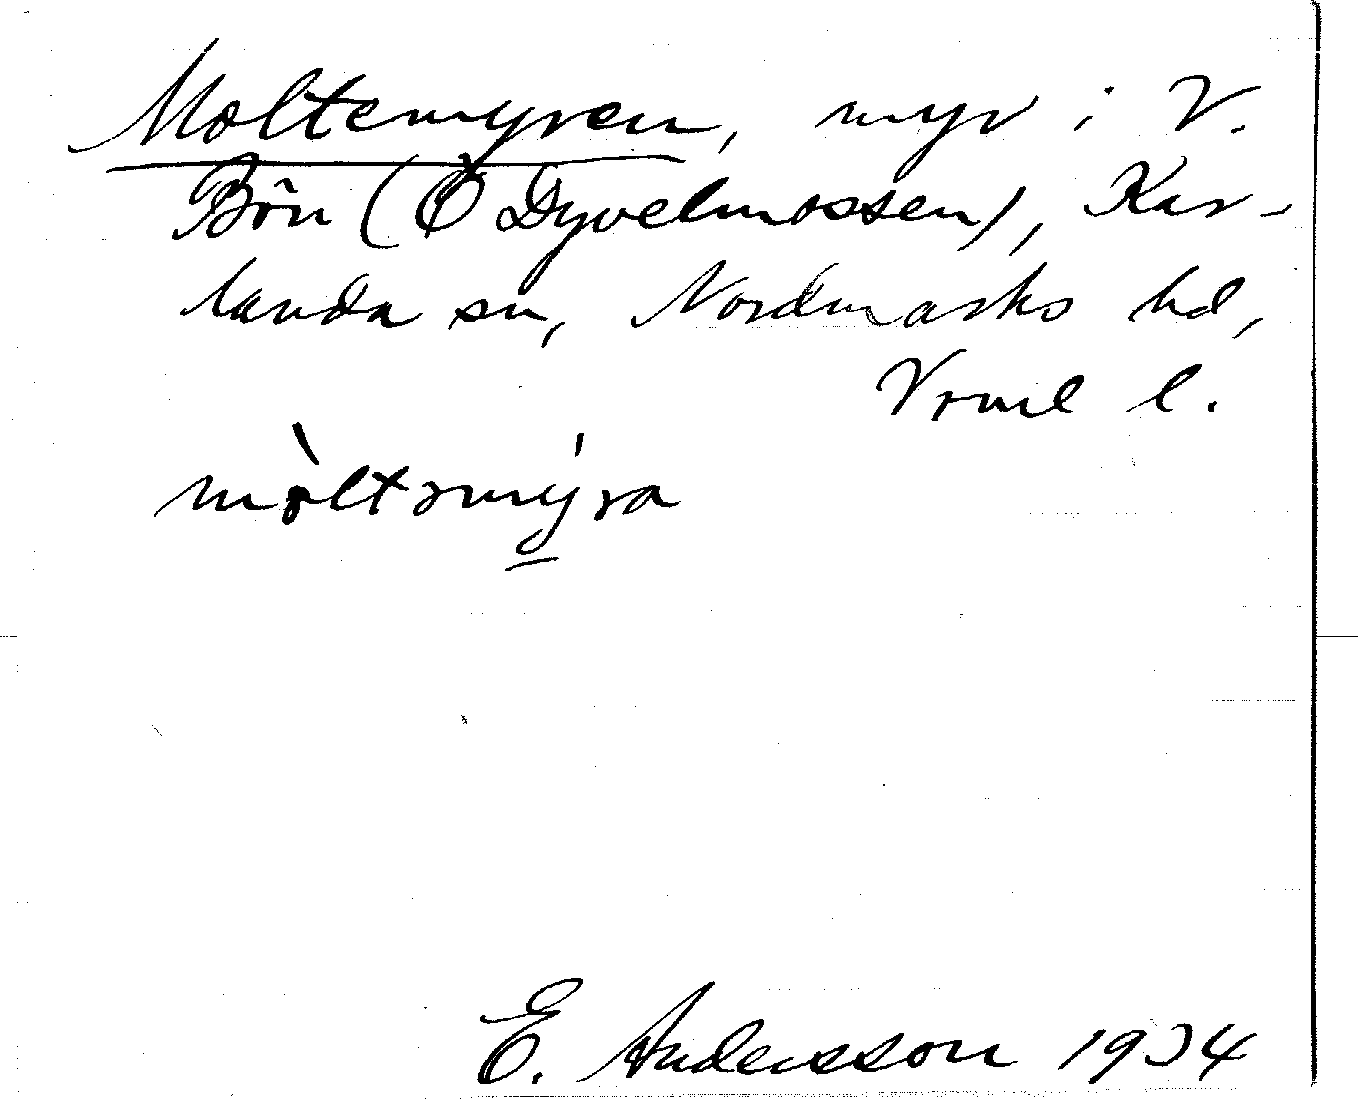 Moltemyren, myr i V.
Bön (Ö Dyvelmossen), Kar-
landa sn, Nordmarks hd,
Vrml l.
mòltəmýra
E. Andersson 1934